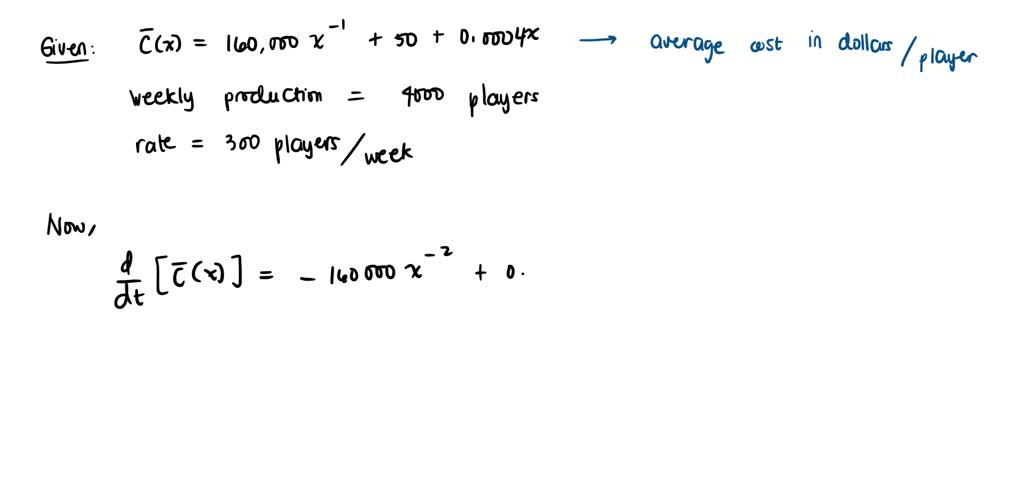 Given: C̄(x) = 160,000 x⁻¹ + 50 + 0.0004x → average cost in dollars/player
weekly production = 4000 players
rate = 300 players/week
Now,
d/dt [C̄(x)] = - 160 000 x⁻² + 0.